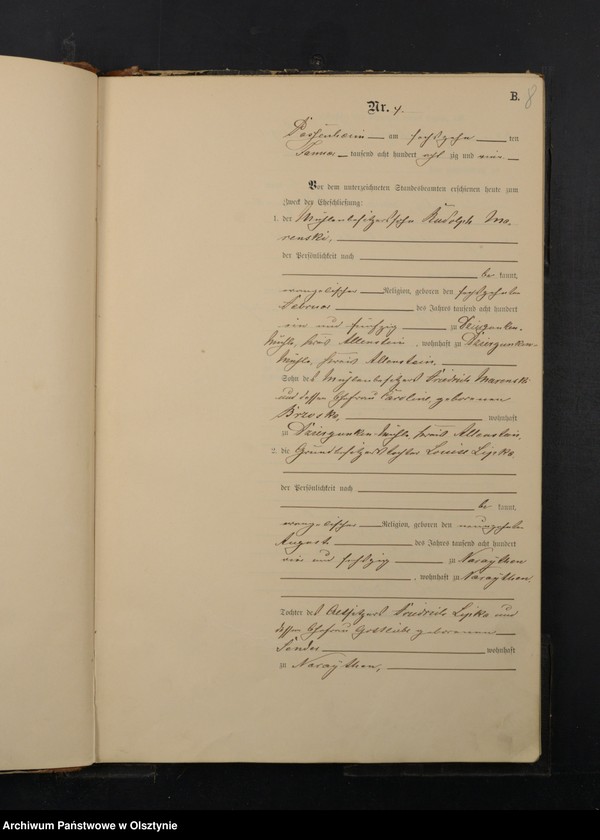 B. 8
Nr. 4.
Passenheim am sechszehn ten
Januar tausend acht hundert acht zig und vier
Vor dem unterzeichneten Standesbeamten erschienen heute zum
Zweck der Eheschließung:
1. der Mühlenbesitzersohn Rudolph Ma-
renski,
der Persönlichkeit nach
be kannt,
evangelischer Religion, geboren den sechszehnten
Februar des Jahres tausend acht hundert
ein und fünfzig zu Dziergunken-
Mühle, Kreis Allenstein, wohnhaft zu Dziergunken-
Mühle, Kreis Allenstein,
Sohn des Mühlenbesitzers Friedrich Marenski
und dessen Ehefrau Caroline, geborenen
Brzoska, wohnhaft
zu Dziergunken-Mühle, Kreis Allenstein.
2. die Grundbesitzerstochter Louise Lipka
der Persönlichkeit nach
be kannt,
evangelischer Religion, geboren den neunzehnten
August des Jahres tausend acht hundert
vier und sechszig zu Naraythen
, wohnhaft zu Naraythen
Tochter des Altsitzers Friedrich Lipka und
dessen Ehefrau Gottliebe geborenen
wohnhaft
zu Naraythen,
Archiwum Państwowe w Olsztynie